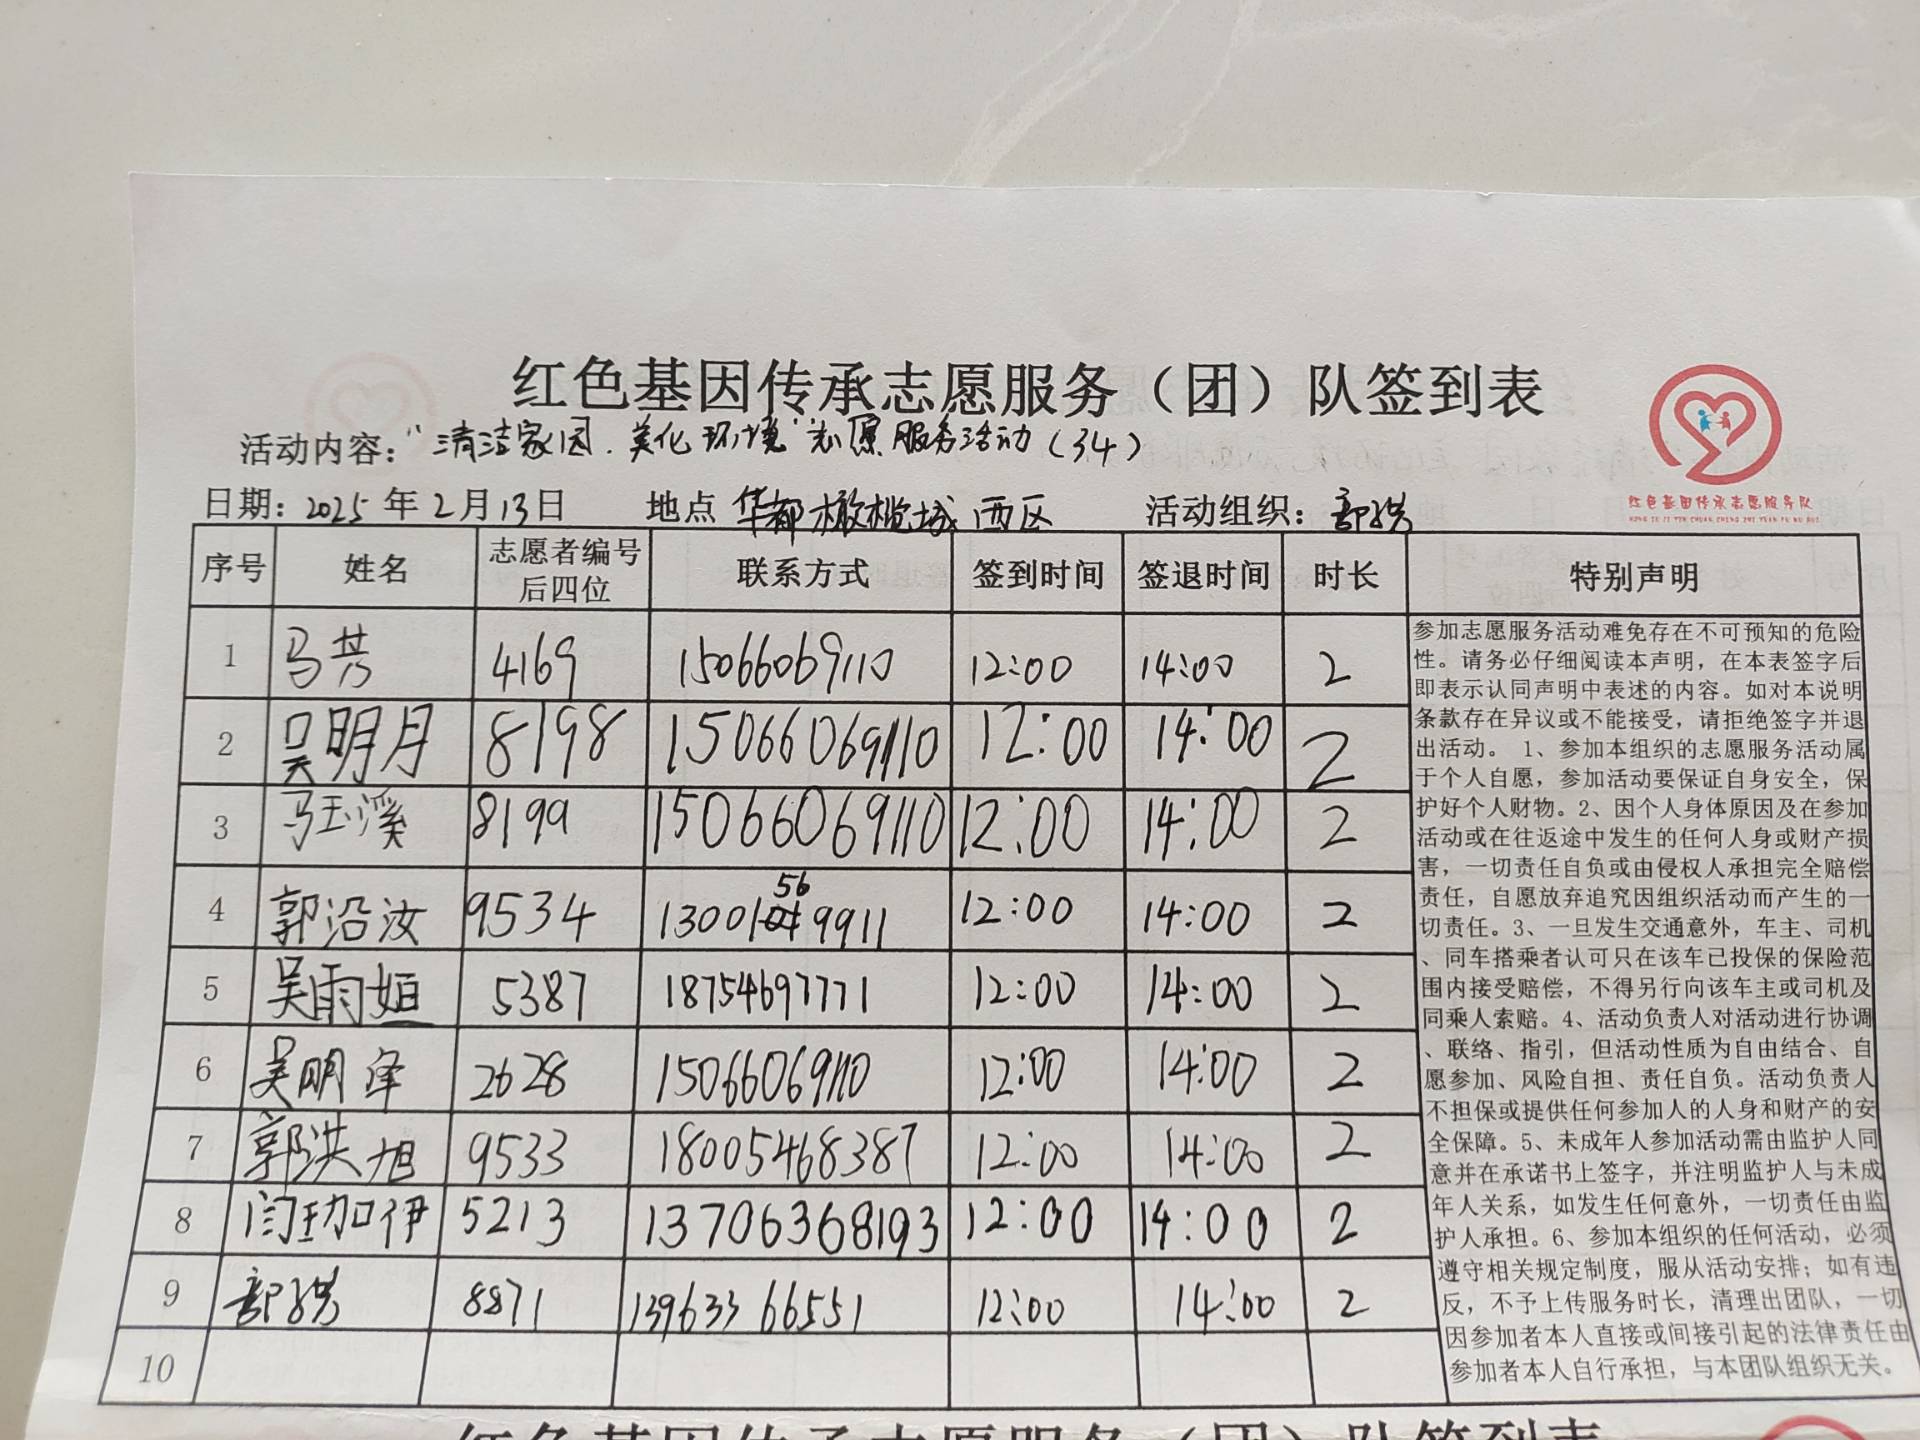 红色基因传承志愿服务（团）队签到表
活动内容："清洁家园.美化环境"志愿服务活动(34)
日期：2025年2月13日 地点 华都橄榄城西区 活动组织：
红色基因传承志愿服务队
HONG SE JI YIN CHUAN CHENG ZHI YUAN FU WU DUI
序号 姓名 志愿者编号后四位 联系方式 签到时间 签退时间 时长 特别声明
1 马芸 4169 15066069110 12:00 14:00 2
2 吴明月 8198 15066069110 12:00 14:00 2
3 马玉溪 8199 15066069110 12:00 14:00 2
4 郭沿汝 9534 13001569911 12:00 14:00 2
5 吴雨姮 5387 18754697771 12:00 14:00 2
6 吴明泽 2628 15066069110 12:00 14:00 2
7 郭洪旭 9533 18005468387 12:00 14:00 2
8 闫珈伊 5213 13706368193 12:00 14:00 2
9 8871 13963366551 12:00 14:00 2
10
参加志愿服务活动难免存在不可预知的危险
性。请务必仔细阅读本声明，在本表签字后
即表示认同声明中表述的内容。如对本说明
条款存在异议或不能接受，请拒绝签字并退
出活动。 1、参加本组织的志愿服务活动属
于个人自愿，参加活动要保证自身安全，保
护好个人财物。2、因个人身体原因及在参加
活动或在往返途中发生的任何人身或财产损
害，一切责任自负或由侵权人承担完全赔偿
责任，自愿放弃追究因组织活动而产生的一
切责任。3、一旦发生交通意外，车主、司机
、同车搭乘者认可只在该车已投保的保险范
围内接受赔偿，不得另行向该车主或司机及
同乘人索赔。4、活动负责人对活动进行协调
、联络、指引，但活动性质为自由结合、自
愿参加、风险自担、责任自负。活动负责人
不担保或提供任何参加人的人身和财产的安
全保障。5、未成年人参加活动需由监护人同
意并在承诺书上签字，并注明监护人与未成
年人关系，如发生任何意外，一切责任由监
护人承担。6、参加本组织的任何活动，必须
遵守相关规定制度，服从活动安排；如有违
反，不予上传服务时长，清理出团队，一切
因参加者本人直接或间接引起的法律责任由
参加者本人自行承担，与本团队组织无关。
红色基因传承志愿服务（团）队签到表